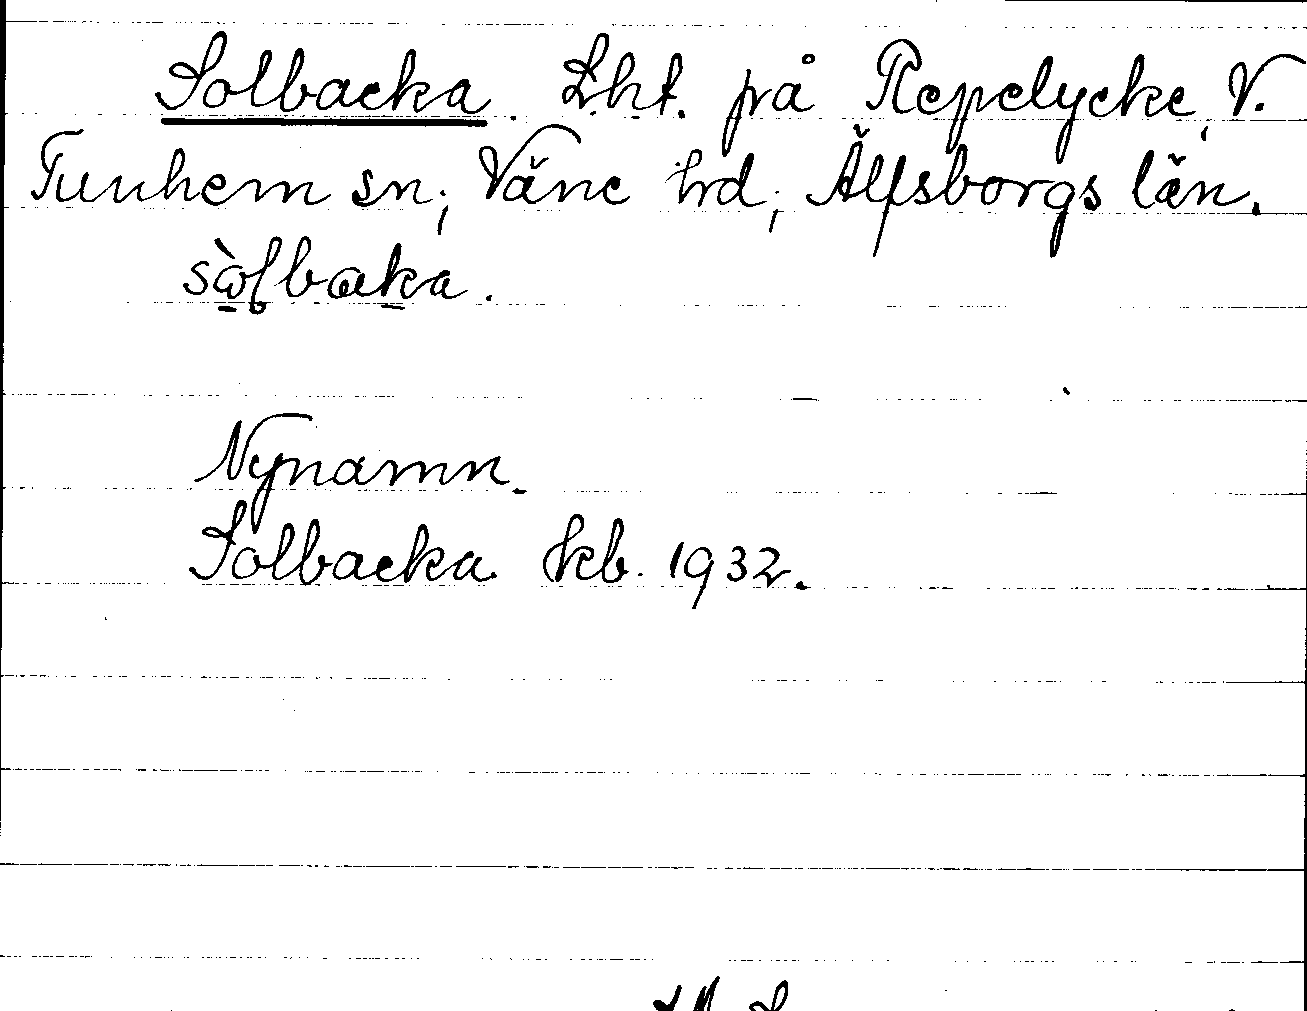 Solbacka. Lht. på Repelycke, V.
Tunhem sn; Väne hrd; Älfsborgs län.
Nynamn.
Solbacka kb. 1932.